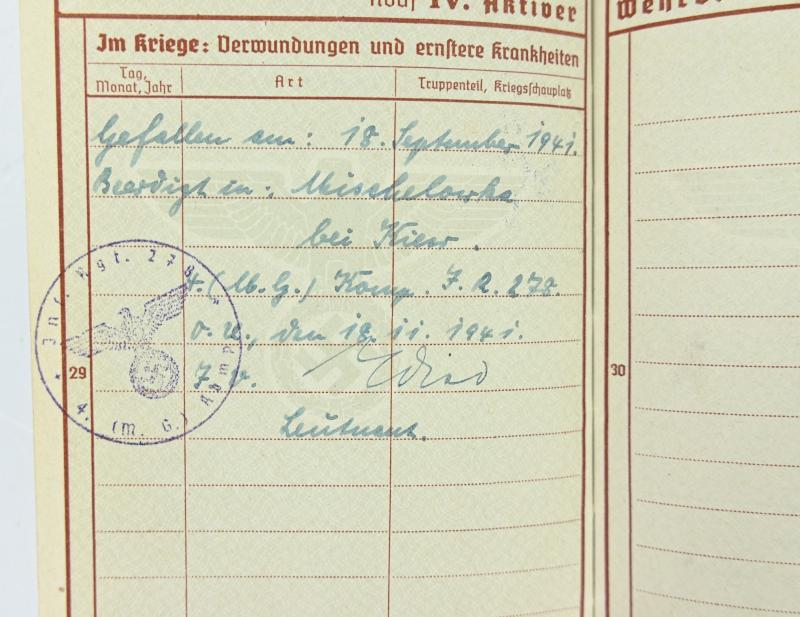 Noch IV. Aktiver
Im Kriege: Verwundungen und ernstere Krankheiten
Tag, Monat, Jahr
Art
Truppenteil, Kriegsschauplatz
Gefallen am: 18. September 1941.
Beerdigt in: Mischelowka
bei Kiew.
4. (M.G.) Komp. J.R. 278.
O.U., den 18.11.1941.
J.V.
Leutnant.
Inf. Rgt. 278
4. (M. G.) Komp.
29
30